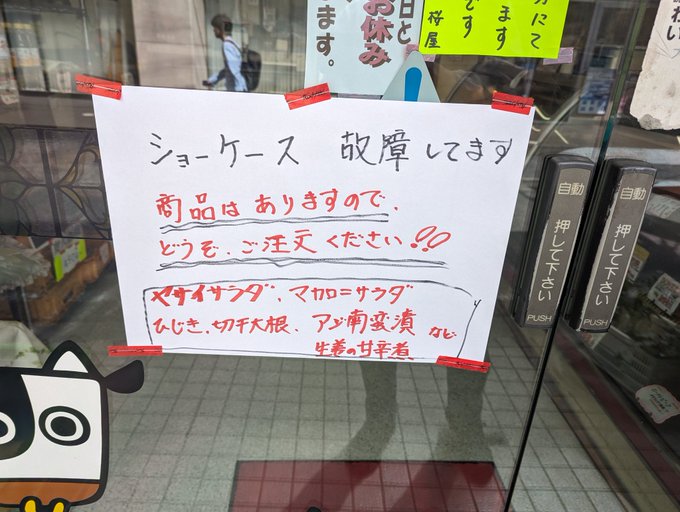 日と
お休み
ます。
にて
ます
です
桜屋
ショーケース 故障してます
商品は ありますので、
どうぞ、ご注文ください!!
ヤサイサラダ、マカロニサラダ
ひじき、切干大根、アジ南蛮漬 など
生姜の甘辛煮
自動
押して下さい
PUSH
自動
押して下さい
PUSH